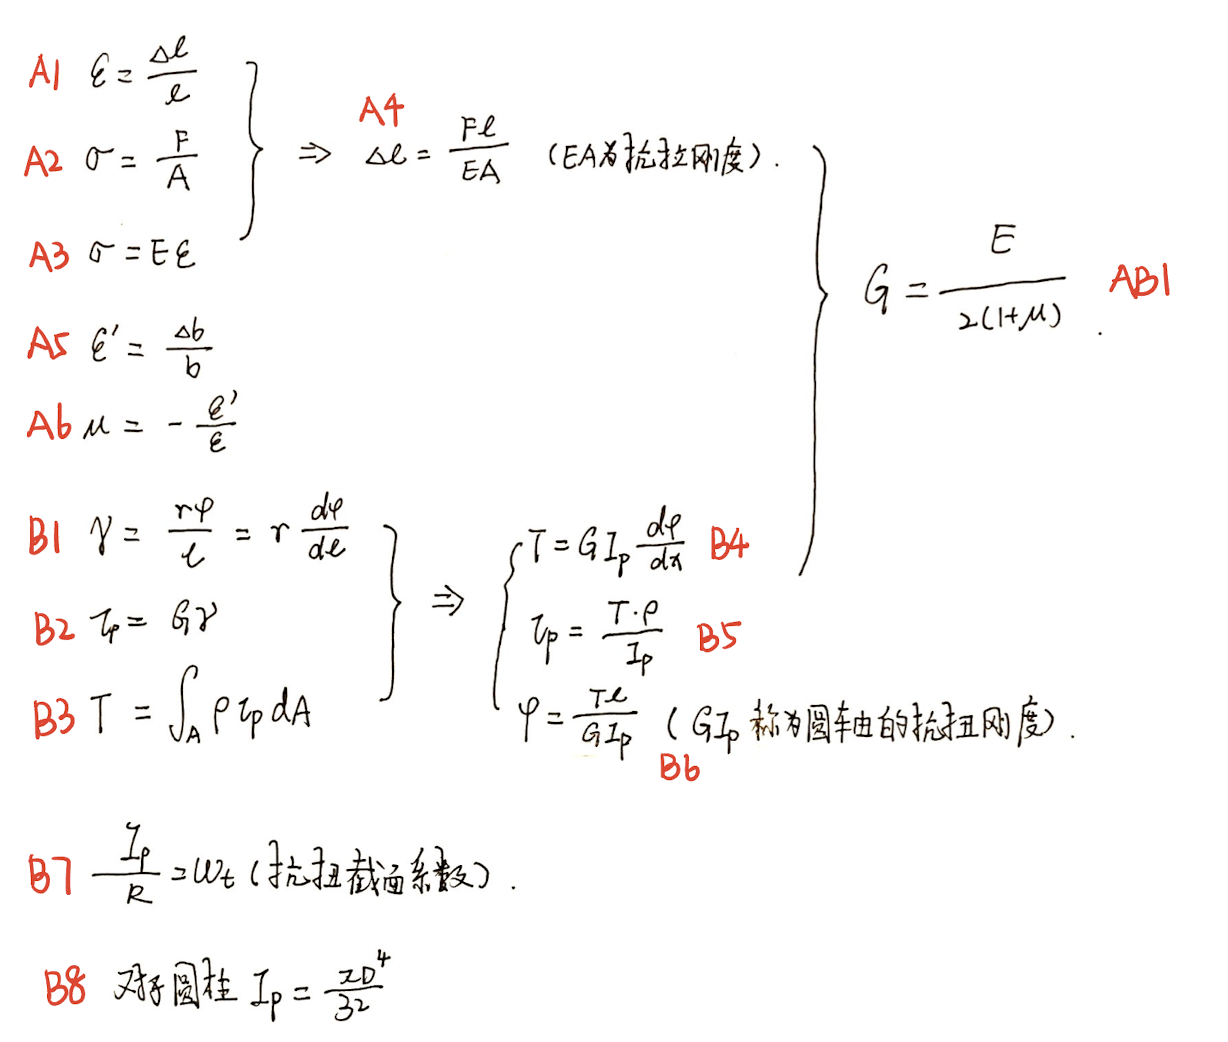 A1 ε = Δl/l
A2 σ = F/A
A3 σ = Eε
⇒ A4 Δl = Fl/EA (EA为抗拉刚度).
A5 ε' = Δb/b
A6 μ = - ε'/ε
B1 γ = rφ/l = r dφ/dl
B2 τρ = Gγ
B3 T = ∫_A ρ τρ dA
⇒ T = GIp dφ/dx B4
τρ = T·ρ/Ip B5
φ = Tl/GIp (GIp 称为圆轴的抗扭刚度).
B6
G = E/2(1+μ) . AB1
B7 Ip/R = Wt (抗扭截面系数).
B8 对于圆柱 Ip = πD⁴/32